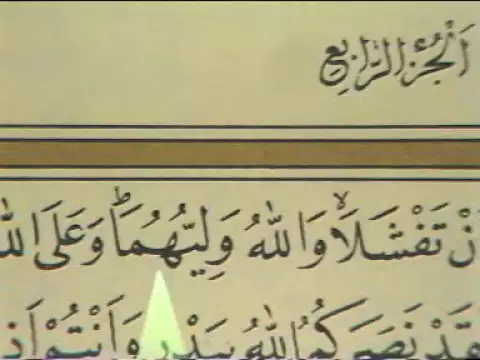 اَلْجُزْءُ الرَّابِعُ
اَنْ تَفْشَلَاۙ وَاللّٰهُ وَلِيُّهُمَاۜ وَعَلَى اللّٰ
نَصَرَكُمُ اللّٰهُ بِبَدْرٍ وَاَنْتُمْ اَذِ